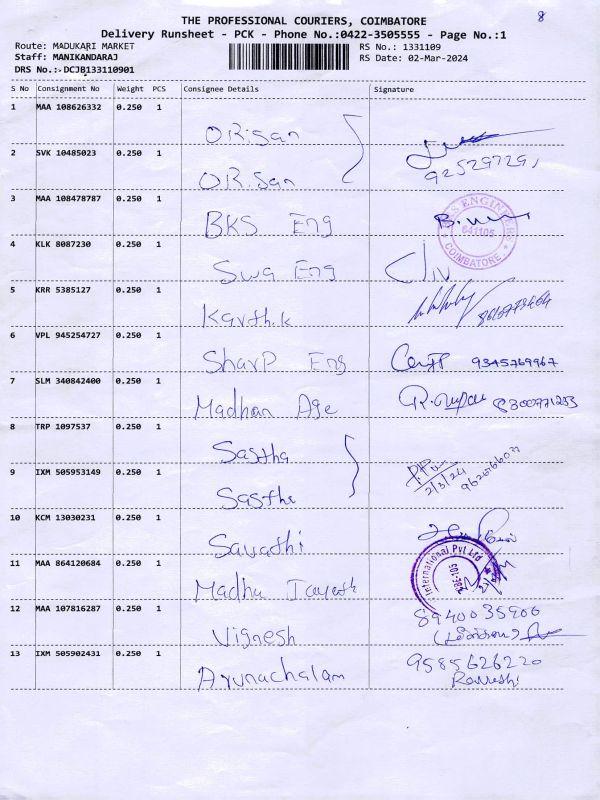 8
THE PROFESSIONAL COURIERS, COIMBATORE
Delivery Runsheet - PCK - Phone No.:0422-3505555 - Page No.:1
Route: MADUKARI MARKET
RS No.: 1331109
Staff: MANIKANDARAJ
RS Date: 02-Mar-2024
DRS No.:-DCJB133110901
S No Consignment No Weight PCS Consignee Details Signature
1 MAA 108626332 0.250 1
ORisan
2 SVK 10485023 0.250 1
OR.San
3 MAA 108478787 0.250 1
BKS Eng
ENGINEERS 641105 COIMBATORE
4 KLK 8087230 0.250 1
Swa Eng
5 KRR 5385127 0.250 1
Karth.k
6 VPL 945254727 0.250 1
Sharp Eng 9345769967
7 SLM 340842400 0.250 1
Madhan Age
8 TRP 1097537 0.250 1
Sastha
2/3/24
9 IXM 505953149 0.250 1
Sastha
10 KCM 13030231 0.250 1
Savathi
International Pvt Ltd
11 MAA 864120684 0.250 1
Madhu
12 MAA 107816287 0.250 1
Vignesh 8940035900
13 IXM 505902431 0.250 1
Arunachalam 9585626220